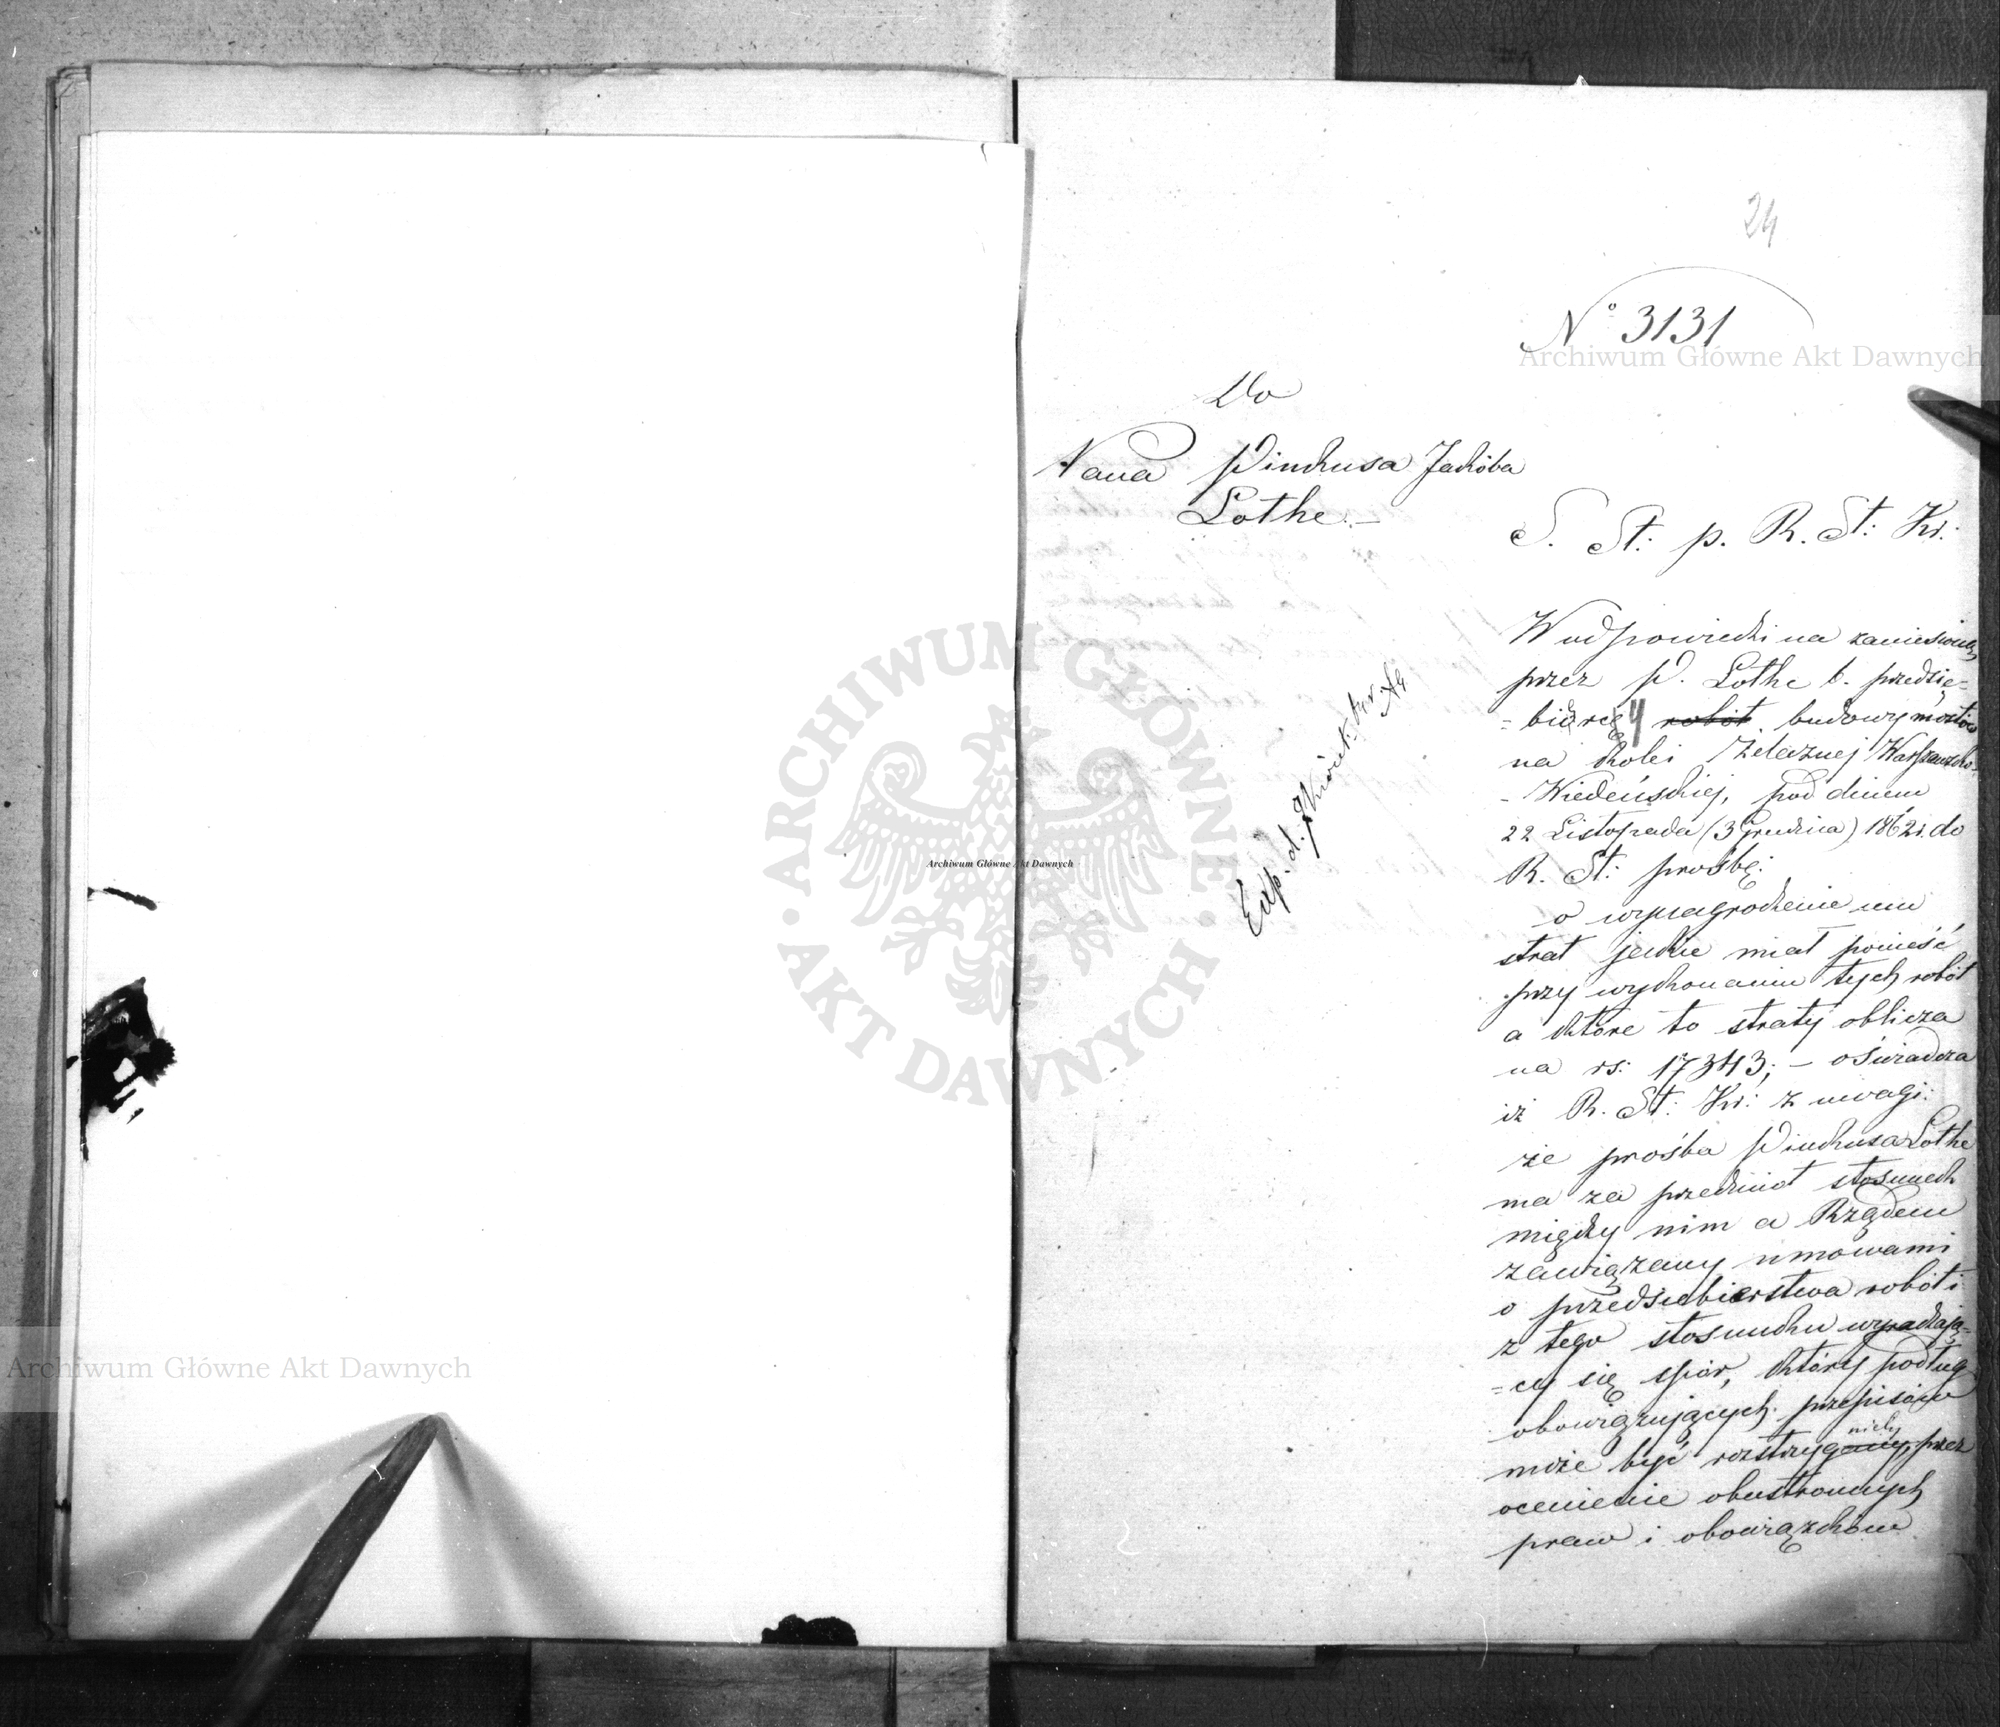 24
No 3131
Do
Pana Pinkusa Jakóba
Lothe.
S. St: p. R. St: Kr:
W odpowiedzi na zaniesioną
przez P. Lothe b. przedsię=
=biercę robót budowy mostów
na kolei Żelaznej Warszawsko-
-Wiedeńskiej, pod dniem
22 Listopada (3 Grudnia) 1862 r. do
R. St: prośbę:
o wynagrodzenie mu
strat jakie miał ponieść
przy wykonaniu tych robót
a które to straty oblicza
na rs: 17343; – oświadcza
iż R. St: Kr: z uwagi:
że prośba Pinkusa Lothe
ma za przedmiot stosunek
między nim a Rządem
zawiązany umowami
o przedsiebierstwa robót i
z tego stosunku wyradzają=
=cy się spór, który podług
obowiązujących przepisów
może być rozstrzygany, przez
ocenienie obustronnych
praw i obowiązków
Archiwum Główne Akt Dawnych
Archiwum Główne Akt Dawnych
Archiwum Główne Akt Dawnych
ARCHIWUM GŁÓWNE AKT DAWNYCH